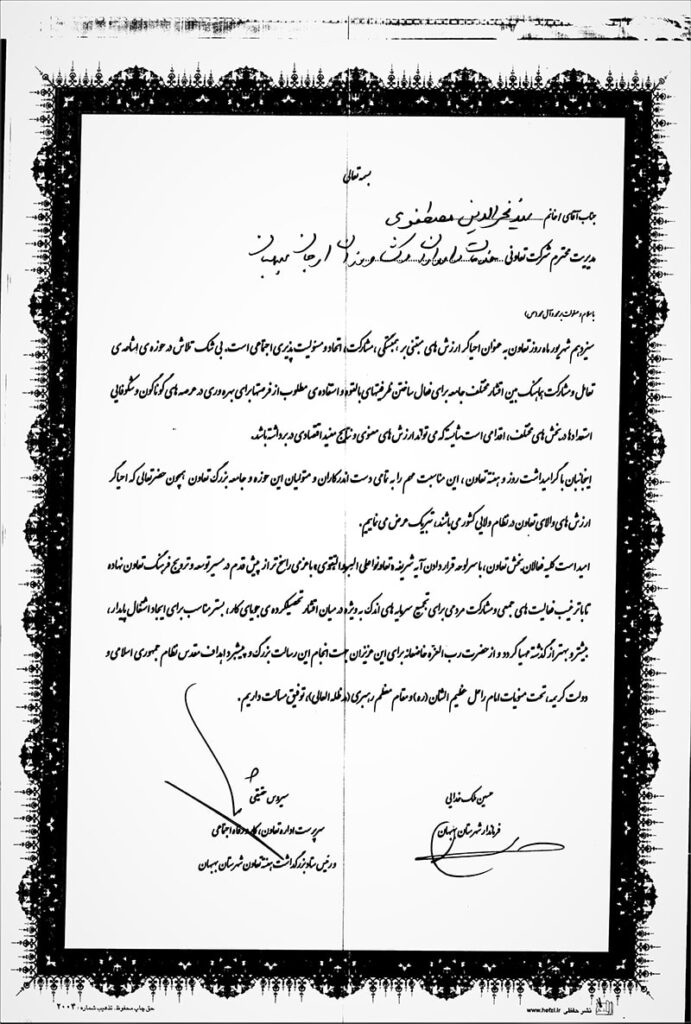 بسمه تعالی
جناب آقای / خانم سید فخرالدین مصطفوی
مدیریت محترم شرکت تعاونی خدمات راه و ارجان بهبهان
با سلام و صلوات بر محمد و آل محمد (ص)
سیزدهم شهریور ماه روز تعاون به عنوان احیاگر ارزش های مبتنی بر همبستگی، مشارکت، اتحاد و مسئولیت پذیری اجتماعی است. بی شک تلاش در حوزه ی اشاعه ی
تعامل و مشارکت هماهنگ بین اقشار مختلف جامعه برای فعال ساختن ظرفیتهای بالقوه و استفاده ی مطلوب از فرصتها برای بهره وری در عرصه های گوناگون و شکوفایی
استعدادها در بخش های مختلف، اقدامی است شایسته که می تواند ارزش های معنوی و نتایج مفید اقتصادی در برداشته باشد.
اینجانبان با گرامیداشت روز و هفته تعاون، این مناسبت مهم را به تمامی دست اندرکاران و متولیان این حوزه و جامعه بزرگ تعاون همچون حضرتعالی که احیاگر
ارزش های والای تعاون در نظام ولایی کشور می باشند، تبریک عرض می نماییم.
امید است کلیه فعالان بخش تعاون، با سرلوحه قرار دادن آیه شریفه « تعاونوا علی البر و التقوی» با عزمی راسخ تر از پیش قدم در مسیر توسعه و ترویج فرهنگ تعاون نهاده
تا با ترغیب فعالیت های جمعی و مشارکت مردمی برای تجمیع سرمایه های اندک به ویژه در میان اقشار تحصیلکرده ی جویای کار، بستر مناسب برای ایجاد اشتغال پایدار،
بیشتر و بهتر از گذشته مهیا گردد و از حضرت رب العزه خاضعانه برای این عزیزان جهت انجام این رسالت بزرگ و پیشبرد اهداف مقدس نظام جمهوری اسلامی و
دولت کریمه، تحت منویات امام راحل عظیم الشان (ره) و مقام معظم رهبری (مد ظله العالی)، توفیق مسالت داریم.
حسین ملک خدایی
فرماندار شهرستان بهبهان
سیروس حقیقی
سرپرست اداره تعاون، کار و رفاه اجتماعی
و رئیس ستاد بزرگداشت هفته تعاون شهرستان بهبهان
نشر حفظی www.hefzi.ir
حق چاپ محفوظ. تذهیب شماره: ۲۰۰۳